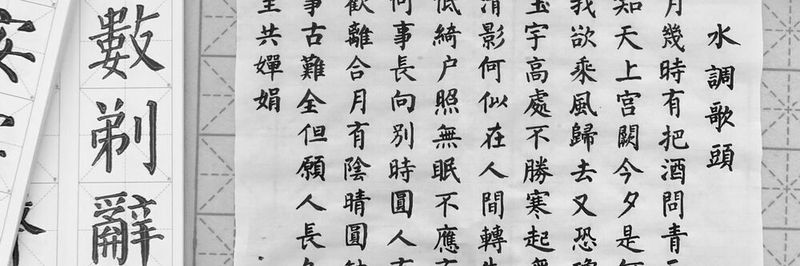 水調歌頭
月幾時有把酒問青
知天上宮闕今夕是
我欲乘風歸去又恐
玉宇高處不勝寒起
清影何似在人間轉
低綺户照無眠不應
何事長向別時圓人
歡離合月有陰晴圓
事古難全但願人長
里共嬋娟
數剃辭